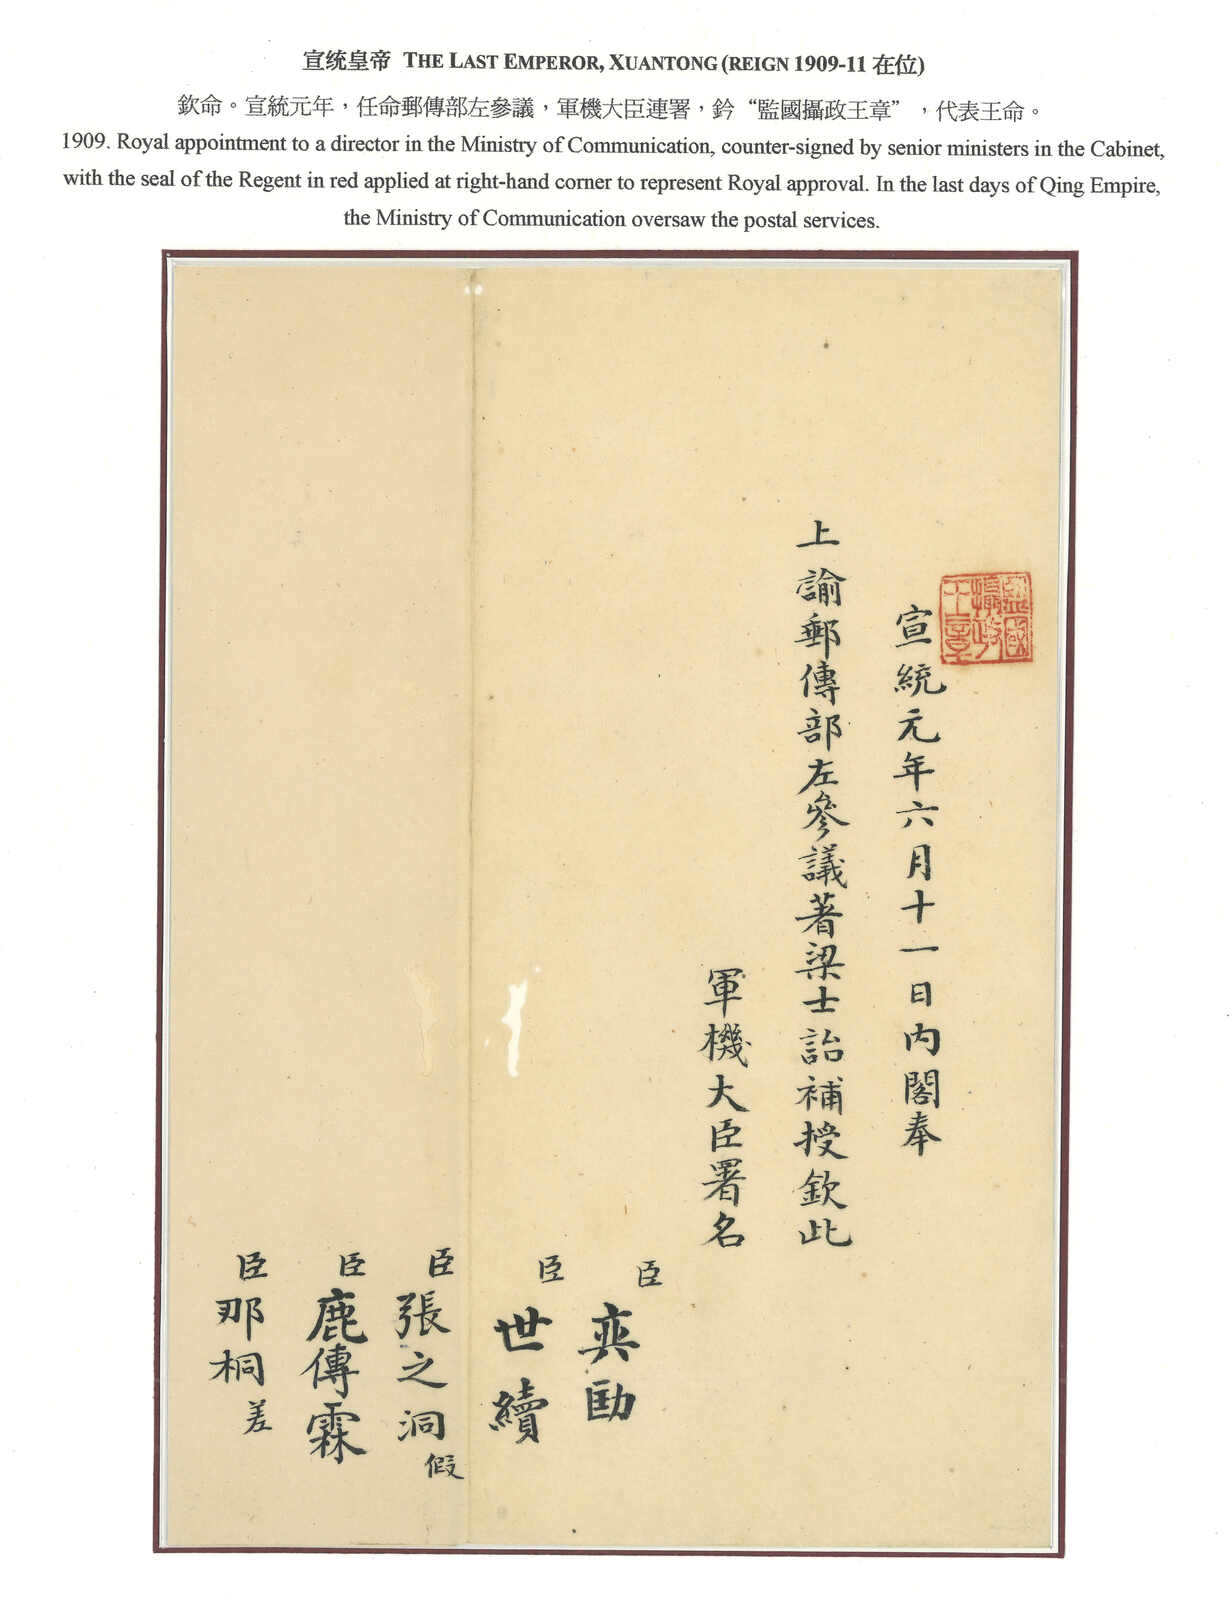 宣统皇帝 THE LAST EMPEROR, XUANTONG (REIGN 1909-11 在位)
欽命。宣統元年，任命郵傳部左參議，軍機大臣連署，鈐“監國攝政王章”，代表王命。
1909. Royal appointment to a director in the Ministry of Communication, counter-signed by senior ministers in the Cabinet,
with the seal of the Regent in red applied at right-hand corner to represent Royal approval. In the last days of Qing Empire,
the Ministry of Communication oversaw the postal services.
監國攝政王章
宣統元年六月十一日內閣奉
上諭郵傳部左參議著梁士詒補授欽此
軍機大臣署名
臣奕劻
臣世續
臣張之洞假
臣鹿傳霖
臣那桐差